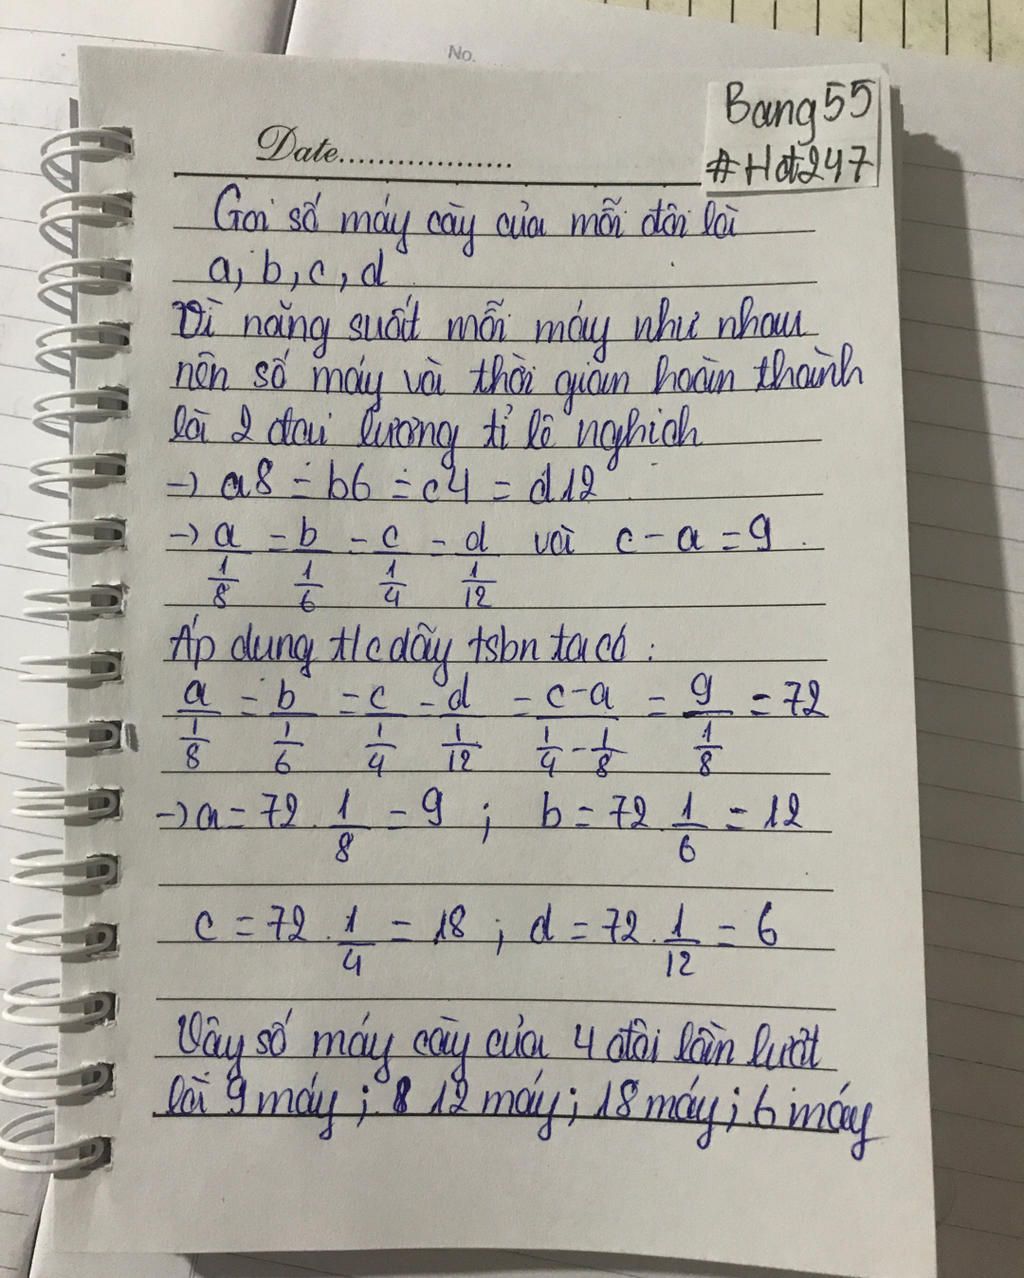 No.
Bang55
#Hot247
Date..................
Gọi số máy cày của mỗi đội là
a, b, c, d
Vì năng suất mỗi máy như nhau
nên số máy và thời gian hoàn thành
là 2 đại lượng tỉ lệ nghịch
→ a8 = b6 = c4 = d12
→ a/(1/8) = b/(1/6) = c/(1/4) = d/(1/12) và c - a = 9.
Áp dụng t/c dãy tsbn ta có:
a/(1/8) = b/(1/6) = c/(1/4) = d/(1/12) = (c-a)/(1/4 - 1/8) = 9/(1/8) = 72
→ a = 72. 1/8 = 9 ; b = 72. 1/6 = 12
c = 72. 1/4 = 18 ; d = 72. 1/12 = 6
Vậy số máy cày của 4 đội lần lượt
là 9 máy ; 12 máy ; 18 máy ; 6 máy